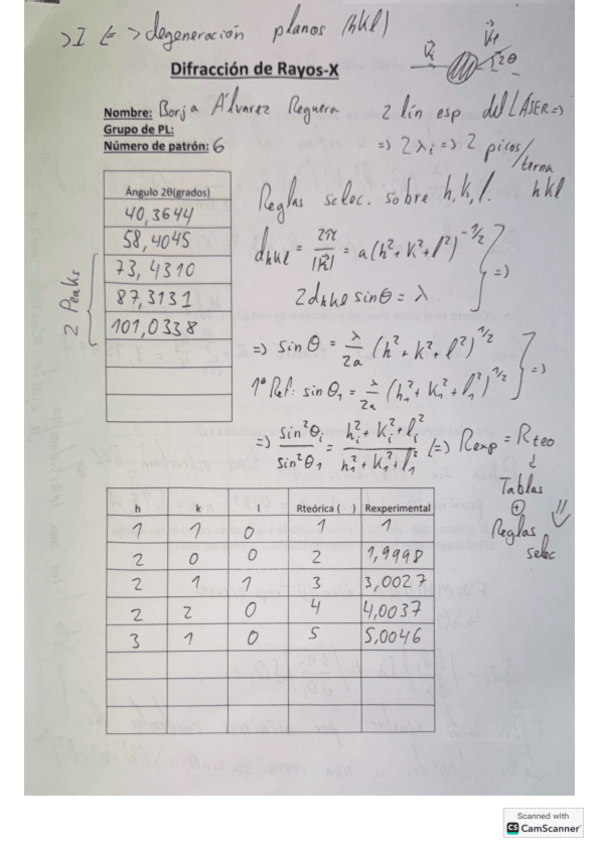 >I ⇐ > degeneración planos (hkl)
Difracción de Rayos-X
2θ
Nombre: Borja Álvarez Reguera
Grupo de PL:
Número de patrón: 6
2 lín esp del LÁSER =>
=> 2 λi => 2 picos/terna hkl
Ángulo 2θ(grados)
40,3644
58,4045
73,4310
87,3131
101,0338
2 Peaks
Reglas selec. sobre h, k, l.
d_hkl = 2π/|R| = a(h²+k²+l²)^-1/2
2d_hkl sinθ = λ
=>
=> sin θ = λ/2a (h²+k²+l²)^1/2
1ª Ref: sin θ₁ = λ/2a (h₁²+k₁²+l₁²)^1/2
=>
=> sin²θi/sin²θ₁ = (hi²+ki²+li²)/(h₁²+k₁²+l₁²) (=) Rexp = Rteo
Tablas
⊕
Reglas
selec
h k l Rteórica ( ) Rexperimental
1 1 0 1 1
2 0 0 2 1,9998
2 1 1 3 3,0027
2 2 0 4 4,0037
3 1 0 5 5,0046
Scanned with
CS CamScanner